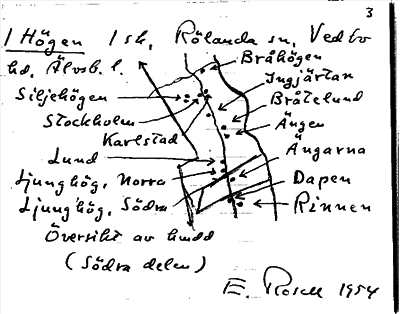 3
1 Högen 1 sk, Rölanda sn, Vedbo
hd, Älvsb. l.
Bråhögen
Siljehögen
Ingjärtan
Stockholm
Bråtelund
Karlstad
Ängen
Lund
Ängarna
Ljunghög, Norra
Dapen
Ljunghög, Södra
Rinnen
Översikt av
(Södra delen)
E. Rosell 1954